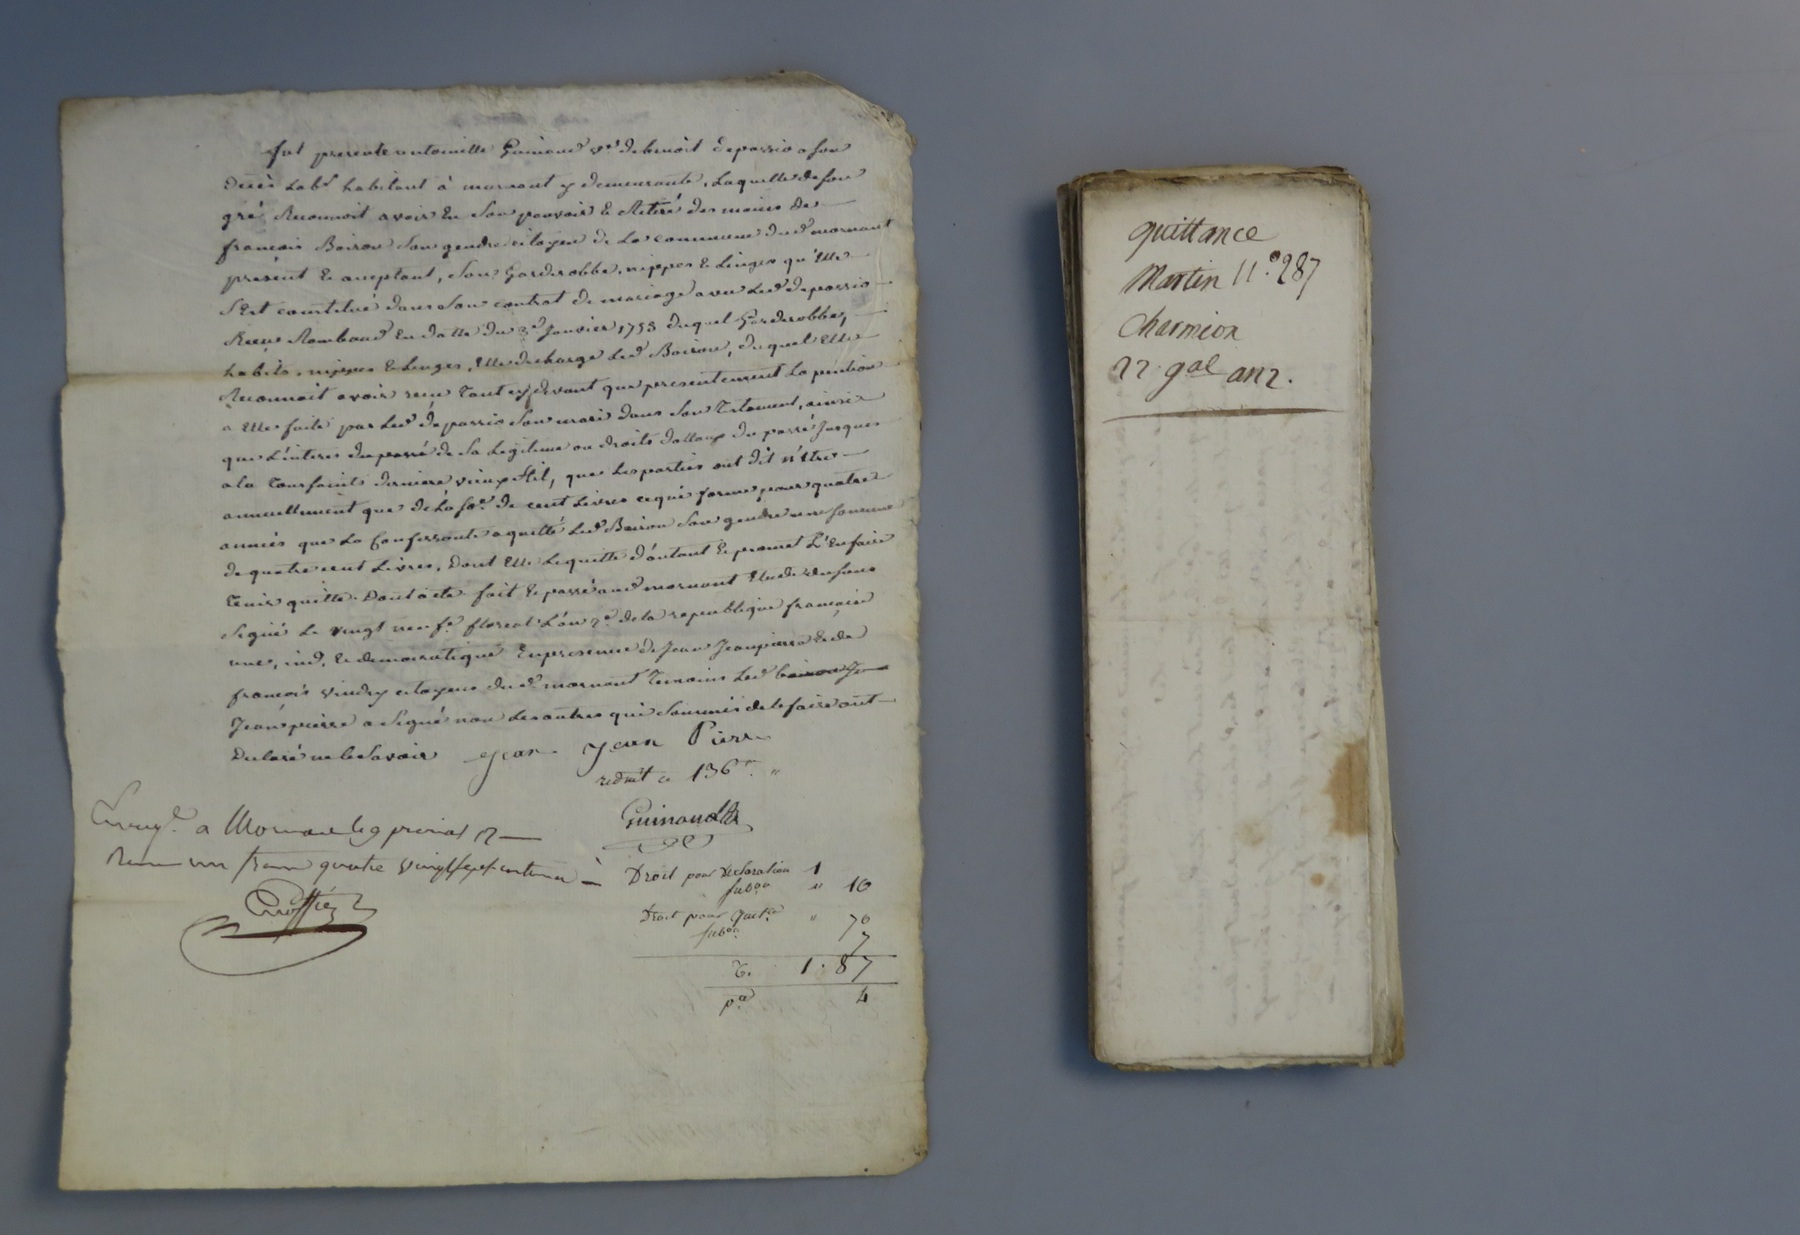 fut presente antoinette Guinand v.e de benoit deparrio a son
decès lab.r habitant à mornant y demeurante, laquelle de son
gré Reconnoit avoir Eu En son pouvoir & Retiré des mains de
francois Boiron son gendre citoyen de la commune dud. mornant
présent & acceptant, son Garderobbe, nippes & linges qu'elle
s'est constitué dans son contrat de mariage avec led. deparrio
Reçu Rombaud En datte du 3.e Janvier 1753 duquel Garderobbe,
habits, nippes & linges, Elle decharge led. Boiron, duquel Elle
Reconnoit avoir recu tant cydevant que presentement la pention
a Elle faite par led. deparrio son mari dans son Testament, ainsi
que l'interes du passé de sa legitime ou droits dallaup du passé Jusques
a la Toussaints derniere vieux stil, que les parties ont dit n'être
annuellement que de la so.e de cent Livres ce qui forme pour quatre
années que la Confessante a quitté led. Boiron son gendre une somme
de quatre cent Livres, dont Elle le quitte d'autant & promet l'En faire
tenir quitte. Dont acte fait & passé aud. mornant Etude du sous
signé le vingt neuf.e floreal L'an 2.e de la republique francaise
une, ind. & democratique En presence de Jean Jeanpierre & de
francois vindry citoyens dud. mornant Temoins led.
Jeanpierre a signé non les autres qui sommés de le faire ont
Declaré ne le savoir Jean Jean Pierre
reduit a 136 "
Guinand
Enreg.é a Mornant le 9 prairial 2
Recu un franc quatre vingt sept centimes
Droit pour Declaration 1
sub.on " 10
Droit pour quit.ce " 70
sub.on 7
T. 1.87
p.a 4
quittance
Martin 11.o 287
Charmion
22 g.al an 2.